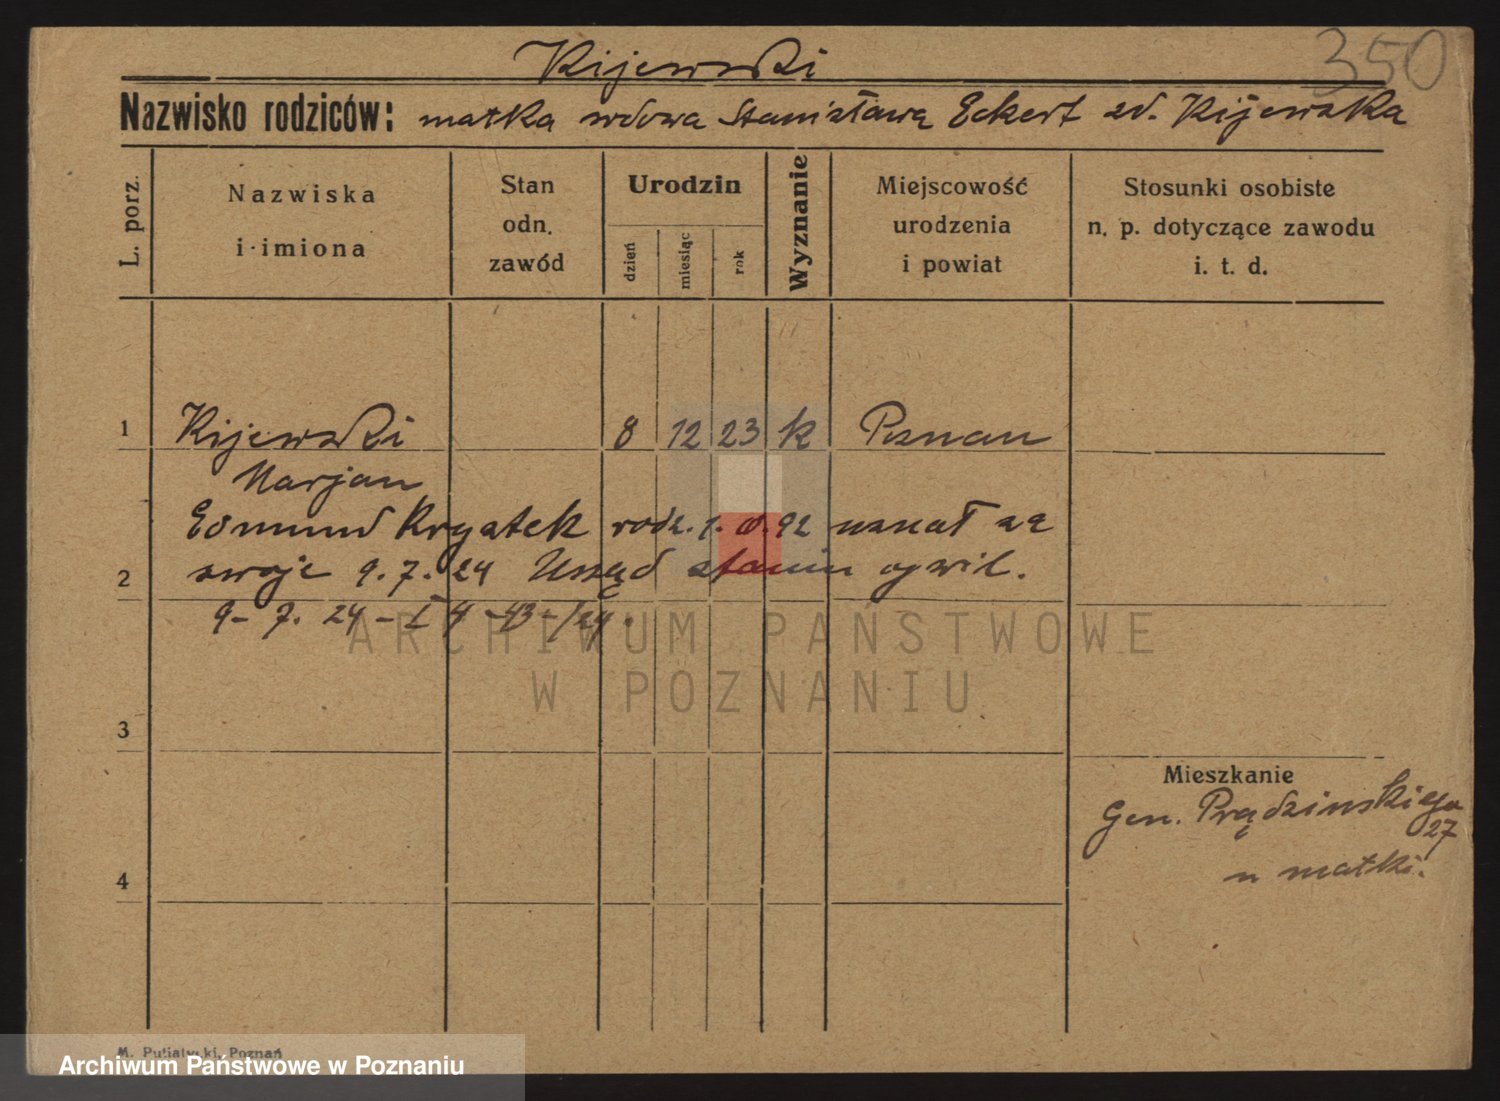 350
Kijewski
Nazwisko rodziców: matka wdowa Stanisława Eckert zd. Kijewska
L. porz.
Nazwiska
i imiona
Stan
odn.
zawód
Urodzin
dzień
miesiąc
rok
Wyznanie
Miejscowość
urodzenia
i powiat
Stosunki osobiste
n. p. dotyczące zawodu
i. t. d.
1 Kijewski 8 12 23 k Poznan
Marjan
Edmund rodz. 1. 92 uznał za
2 swoje 9. 7. 24 Urząd stanu cywil.
9 - 7. 24 - I 4 - 43 - /24.
ARCHIWUM PAŃSTWOWE
W POZNANIU
3
Mieszkanie
Gen. Prądzinskiego
27
u matki.
4
M. Putiatycki, Poznań
Archiwum Państwowe w Poznaniu